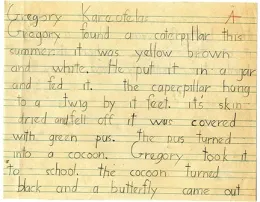 Gregory A
Gregory found a caterpillar this
summer. it was yellow brown
and white. He put it in a jar
and fed it. the caperpillar hung
to a twig by it feet. it's skin
dried and fell off it was covered
with green pus. the pus turned
into a cocoon. Gregory took it
to school. the cocoon turned
black and a butterfly came out